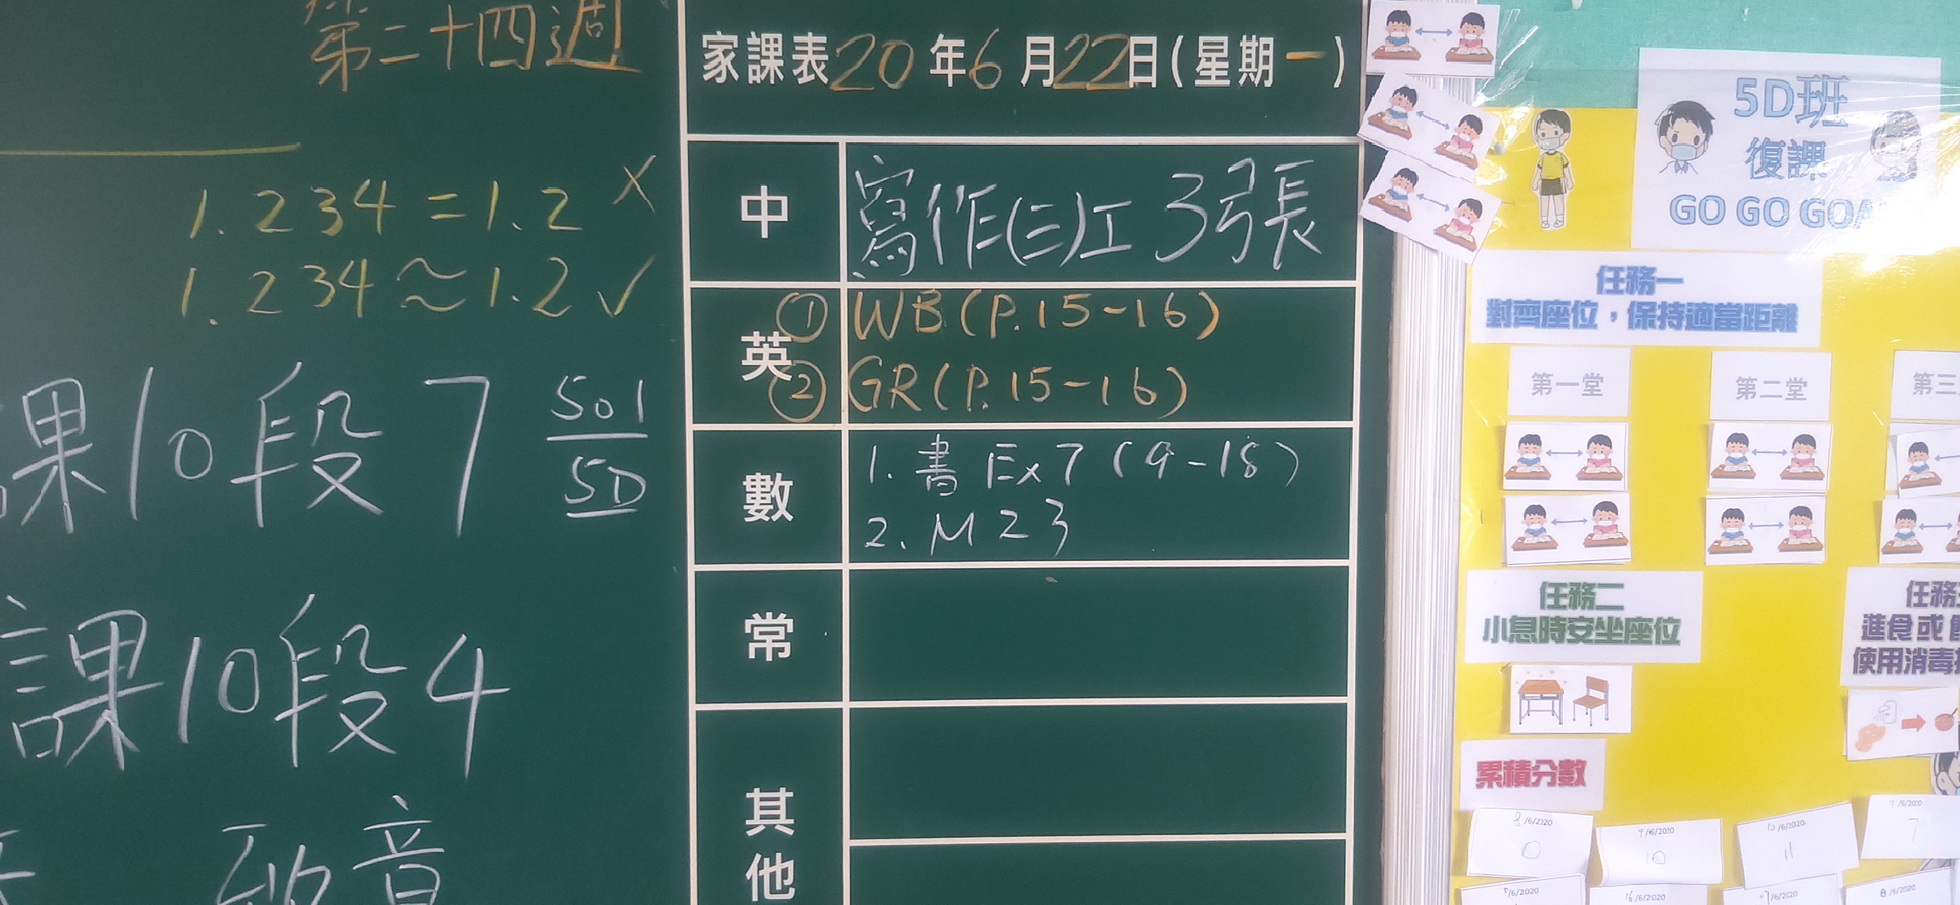 第二十四週
1.234=1.2 ×
1.234≈1.2 ✓
課10 段7 501
5D
課10段4
音
家課表20年6月22日(星期一)
中 寫作(三)工 3張
英 ① WB(P.15-16)
② GR(P.15-16)
數 1. 書 Ex7 (9-18)
2. M23
常
其他
5D班
復課
GO GO GOAL
任務一
對齊座位，保持適當距離
第一堂 第二堂 第三
任務二
小息時安坐座位
任務
進食或
使用消毒
累積分數
8/6/2020
0
9/6/2020
10
10/6/2020
11
11/6/2020
7
16/6/2020
17/6/2020